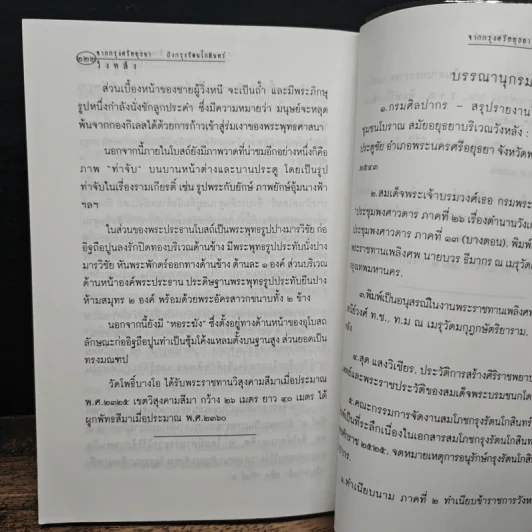 จากกรุงศรีอยุธยา ถึงกรุงรัตนโกสินทร์
๒๒๒ วั ง ห ลั ง
ส่วนเบื้องหน้าของชายผู้วิ่งหนี จะเป็นถ้ำ และมีพระภิกษุ
รูปหนึ่งกำลังนั่งชักลูกประคำ ซึ่งมีความหมายว่า มนุษย์จะหลุด
พ้นจากกองกิเลสได้ด้วยการก้าวเข้าสู่ร่มเงาของพระพุทธศาสนา
นอกจากนี้ภายในโบสถ์ยังมีภาพวาดที่น่าชมอีกอย่างหนึ่งก็คือ
ภาพ "ท่าจับ" บนบานหน้าต่างและบานประตู โดยเป็นรูป
ท่าจับในเรื่องรามเกียรติ์ เช่น รูปพระกับยักษ์ ภาพยักษ์อุ้มนางฟ้า
ฯลฯ
ในส่วนของพระประธานในโบสถ์เป็นพระพุทธรูปปางมารวิชัย ก่อ
อิฐถือปูนลงรักปิดทองบริเวณด้านข้าง มีพระพุทธรูปประทับนั่งปาง
มารวิชัย หันพระพักตร์ออกทางด้านข้าง ด้านละ ๑ องค์ ส่วนบริเวณ
ด้านหน้าองค์พระประธาน ประดิษฐานพระพุทธรูปประทับยืนปาง
ห้ามสมุทร ๒ องค์ พร้อมด้วยพระอัครสาวกขนาบทั้ง ๒ ข้าง
นอกจากนี้ยังมี "หอระฆัง" ซึ่งตั้งอยู่ทางด้านหน้าของอุโบสถ
ลักษณะก่ออิฐถือปูนทำเป็นซุ้มโค้งแหลมตั้งบนฐานสูง ส่วนยอดเป็น
ทรงมณฑป
วัดโพธิ์บางโอ ได้รับพระราชทานวิสุงคามสีมาเมื่อประมาณ
พ.ศ.๒๓๒๕ เขตวิสุงคามสีมา กว้าง ๒๖ เมตร ยาว ๔๐ เมตร ได้
ผูกพัทธสีมาเมื่อประมาณ พ.ศ.๒๓๖๐
จากกรุงศรีอยุธยา
บรรณานุกรม
๑.กรมศิลปากร - สรุปรายงาน
ชุมชนโบราณ สมัยอยุธยาบริเวณวังหลัง :
ประตูชัย อำเภอพระนครศรีอยุธยา จังหวัด
๒๕๔๓
๒.สมเด็จพระเจ้าบรมวงศ์เธอ กรมพระ
"ประชุมพงศาวดาร ภาคที่ ๒๖ เรื่องตำนานวังเก่า
ประชุมพงศาวดาร ภาคที่ ๑๓ (บางตอน). พิมพ์
พระราชทานเพลิงศพ นายบวร ธีมากร ณ เมรุวัด
กรุงเทพมหานคร.
๓.พิมพ์เป็นอนุสรณ์ในงานพระราชทานเพลิงศพ
ท.ช., ท.ม ณ เมรุวัดมกุฏกษัตริยาราม.
๔.สุด แสงวิเชียร, ประวัติการสร้างศิริราชพยาบาล
และพระราชประวัติของสมเด็จพระบรมชนกโดย
๕.คณะกรรมการจัดงานสมโภชกรุงรัตนโกสินทร์
เป็นที่ระลึกเนื่องในเอกสารสมโภชกรุงรัตนโกสินทร์
ศักราช ๒๕๒๕. จดหมายเหตุการอนุรักษ์กรุงรัตนโกสินทร์
๖.ทำเนียบนาม ภาคที่ ๒ ทำเนียบข้าราชการวังหลัง